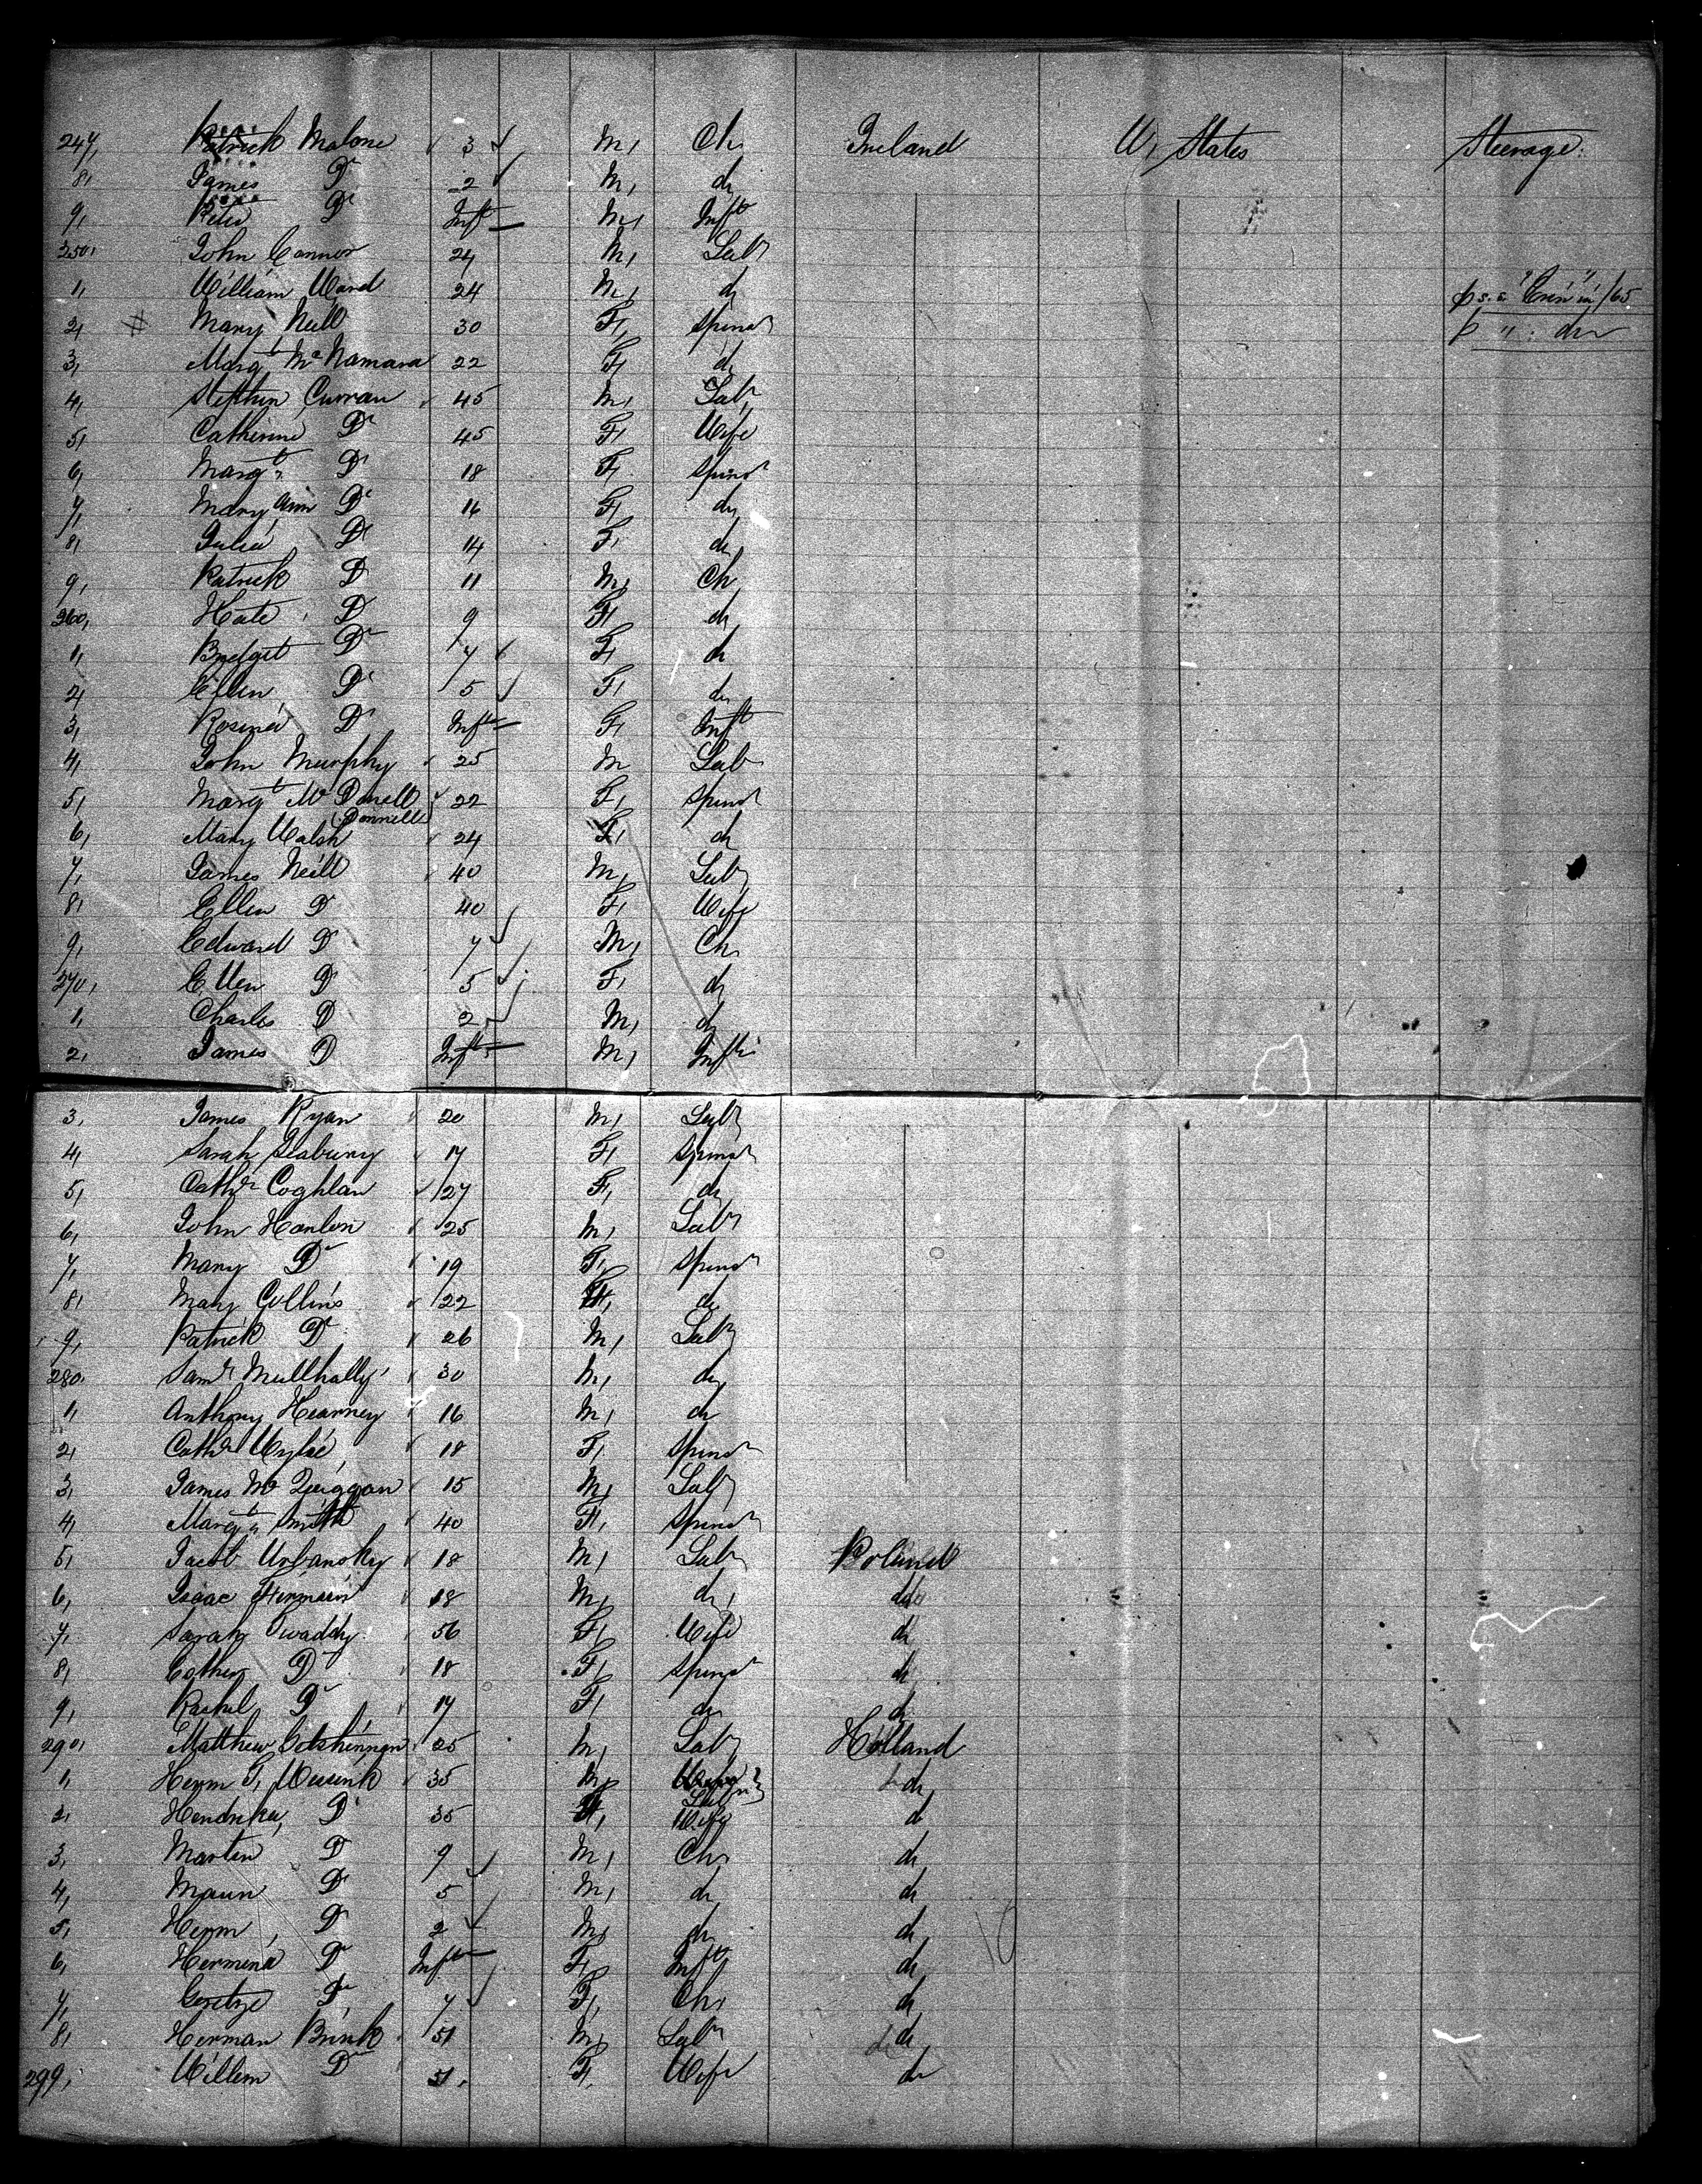 247, Patrick Malone 3 M, Ch, Ireland U, States Steerage.
8, James Do 2 M, do
9, Peter Do Inft M, Inft
250, John Connor 24 M, Labr
1, William Ward 24 M, do p s.s. "Erin" in /65
2, # Mary Neill 30 F, Spinsr p " : do
3, Margt McNamara 22 F, do
4, Stephen Curran 45 M, Labr
5, Catherine Do 45 F, Wife
6, Margt Do 18 F, Spinsr
7, Mary Ann Do 16 F, do
8, Julia Do 14 F, do
9, Patrick Do 11 M, Ch
260, Kate Do 9 F, do
1, Bridget Do 7 F, do
2, Ellen Do 5 F, do
3, Rosina Do Inft F, Inft
4, John Murphy 25 M Lab
5, Margt Mc Donell 22 F, Spinsr
(Donnell)
6, Mary Walsh 24 F, do
7, James Neill 40 M, Labr
8, Ellen Do 40 F, Wife
9, Edward Do 7 M, Ch,
270, Ellen Do 5 F, do
1, Charles Do 2 M, do
2, James Do Inft M, Inft
3, James Ryan 20 M, Labr
4, Sarah Seabury 17 F, Spinsr
5, Cathe Coghlan 27 F, do
6, John Hanlon 25 M, Labr
7, Mary Do 19 F, Spinsr
8, Mary Collins 22 F, do
9, Patrick Do 26 M, Labr
280, Saml Mullhally 30 M, do
1, Anthony Kearney 16 M, do
2, Cathe Wylie 18 F, Spinsr
3, James Mc Quiggan 15 M, Labr
4, Margt Smith 40 F, Spinsr
5, Jacob Urbansky 18 M, Labr Poland
6, Isaac 18 M, do, do
7, Sarah Swaddy 56 F, Wife do
8, Esther Do 18 F, Spinsr do
9, Rachel Do 17 F, do do
290, Matthew 25 M, Labr Holland
1, Herm T, Wusink 35 M, Labr do
2, Hendrika, Do 35 F, Wife do
3, Marten Do 9 M, Ch, do
4, Maun Do 5 M, do do
5, Herm Do 2 M, do do
6, Hermina Do Inft F, Inft do
7, Gertze Do 7 F, Ch, do
8, Herman Brink 51 M, Labr do
299, Willem Do 51. F, Wife do